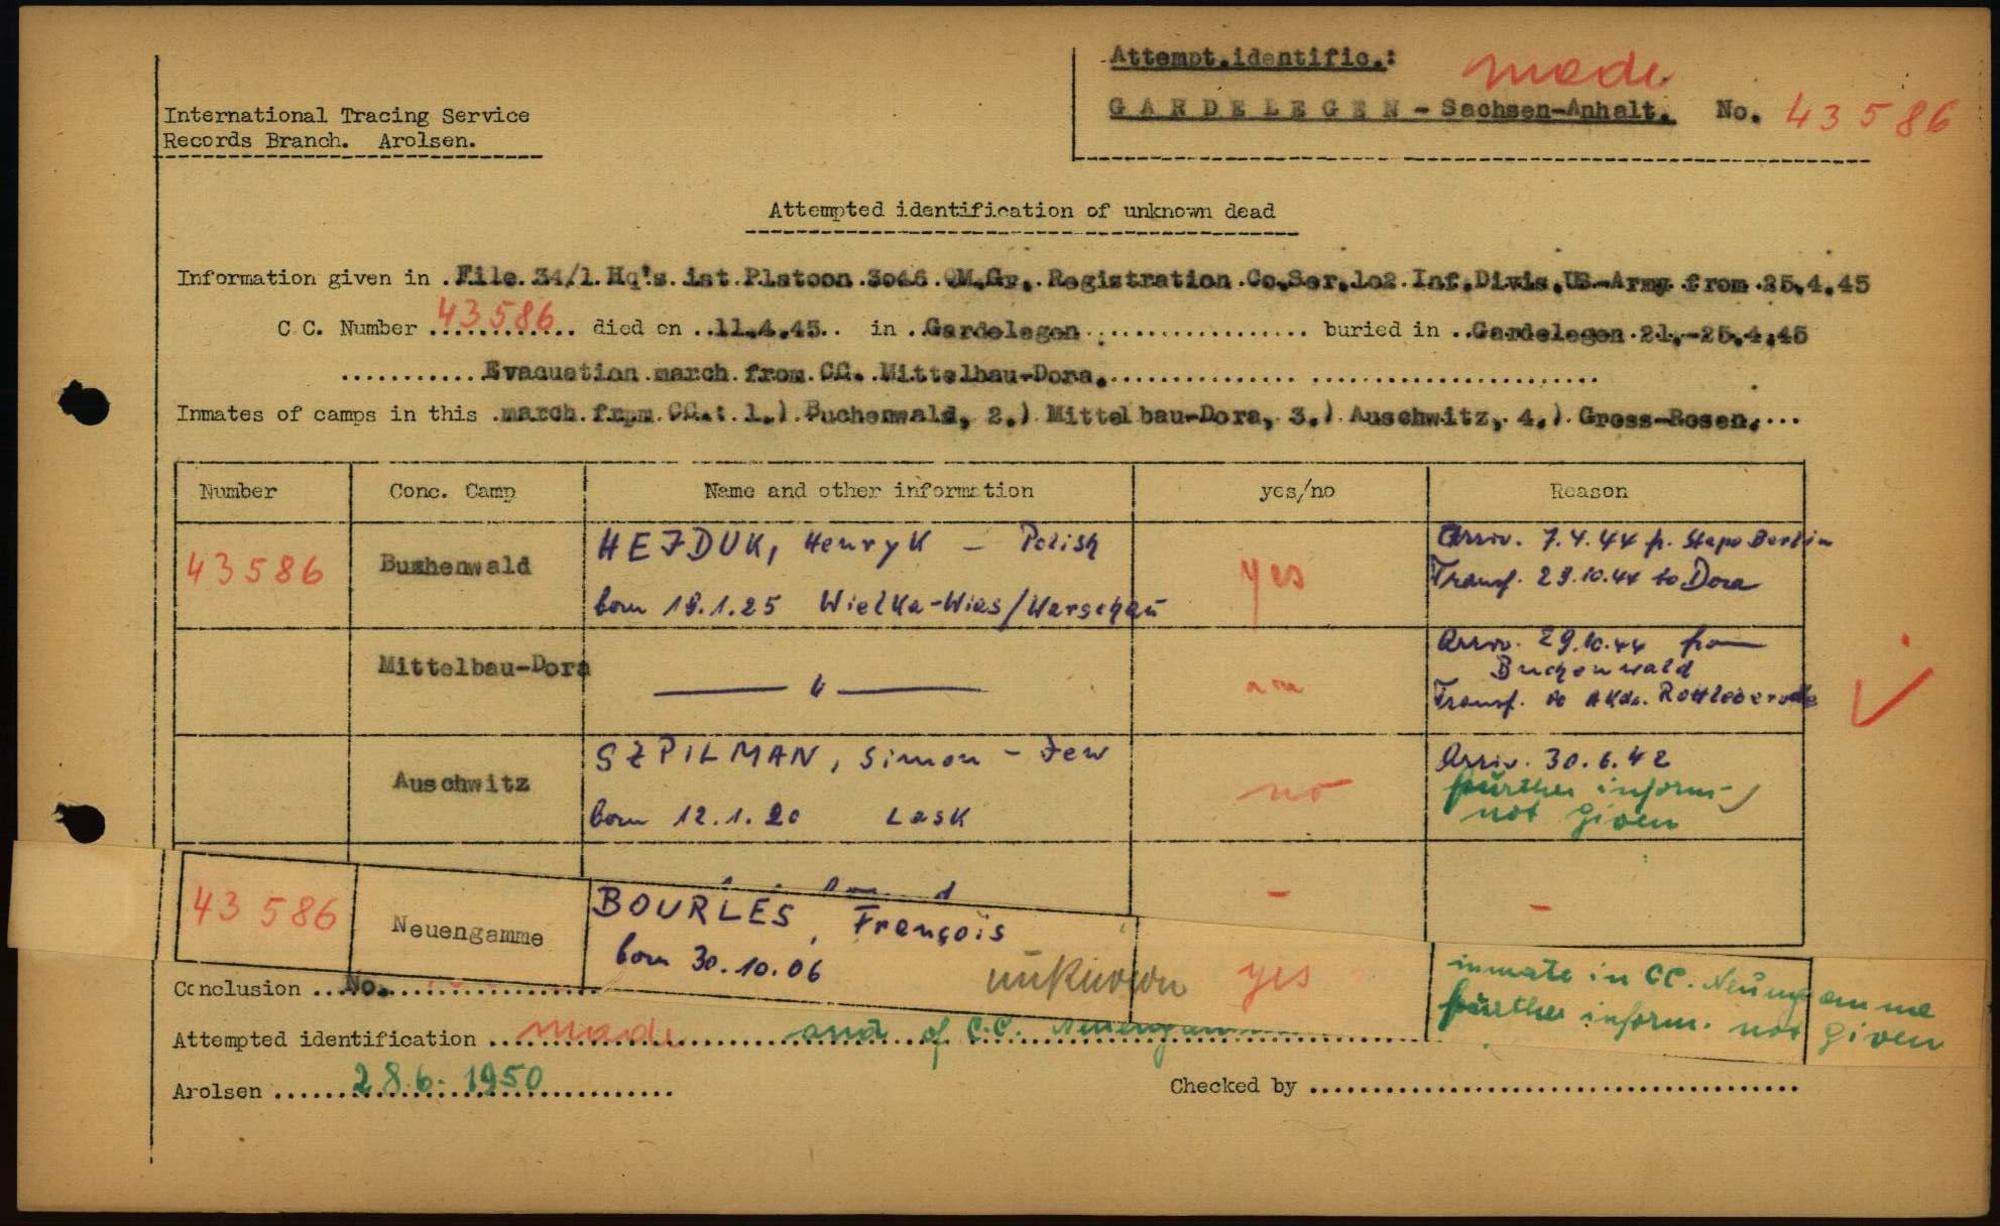 Attempt.identific.: made
International Tracing Service
GARDELEGEN - Sachsen-Anhalt. No. 43586
Records Branch. Arolsen.
Attempted identification of unknown dead
Information given in .File.34/1.Hq's.1st.Platoon.3046.QM.Gr.Registration.Co.Ser.1o2.Inf.Divis.US-Army.from.25.4.45
C.C. Number 43586 died on ..11.4.45.. in ..Gardelegen buried in ..Gardelegen.21.-25.4.45
Evacuation march from CC. Mittelbau-Dora.
Inmates of camps in this .march.frpm.CC.: 1.) Buchenwald, 2.) Mittelbau-Dora, 3.) Auschwitz, 4.) Gross-Rosen.
Number Conc. Camp Name and other information yes/no Reason
43586 Buchenwald HEJDUK, Henryk - Polish yes Arriv. 7.4.44 fr. Stapo Berlin
born 19.1.25 Wielka-Wies/Warschau Transf. 29.10.44 to Dora
Mittelbau-Dora — " — Arriv. 29.10.44 from
Buchenwald
Transf. to AKdo. Rottleberode
Auschwitz SZPILMAN, Simon - Jew no Arriv. 30.6.42
further inform.
born 12.1.20 Lask not given
- -
43586 Neuengamme BOURLES, François
born 30.10.06 unknown yes inmate in CC. Neuengamme
further inform. not given
Conclusion ...No.
Attempted identification made and of C.C. Neuengamme
Arolsen 28.6.1950 Checked by